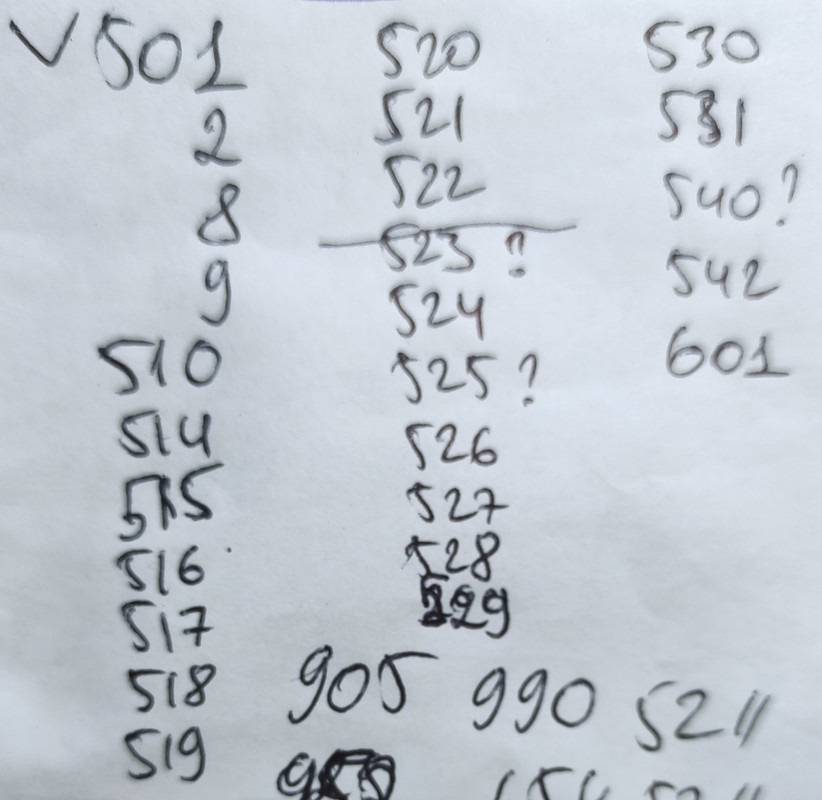 ✓501
2
8
9
510
514
515
516
517
518
519
520
521
522
523 ?
524
525 ?
526
527
528
529
530
531
540?
542
601
905 990 52 //